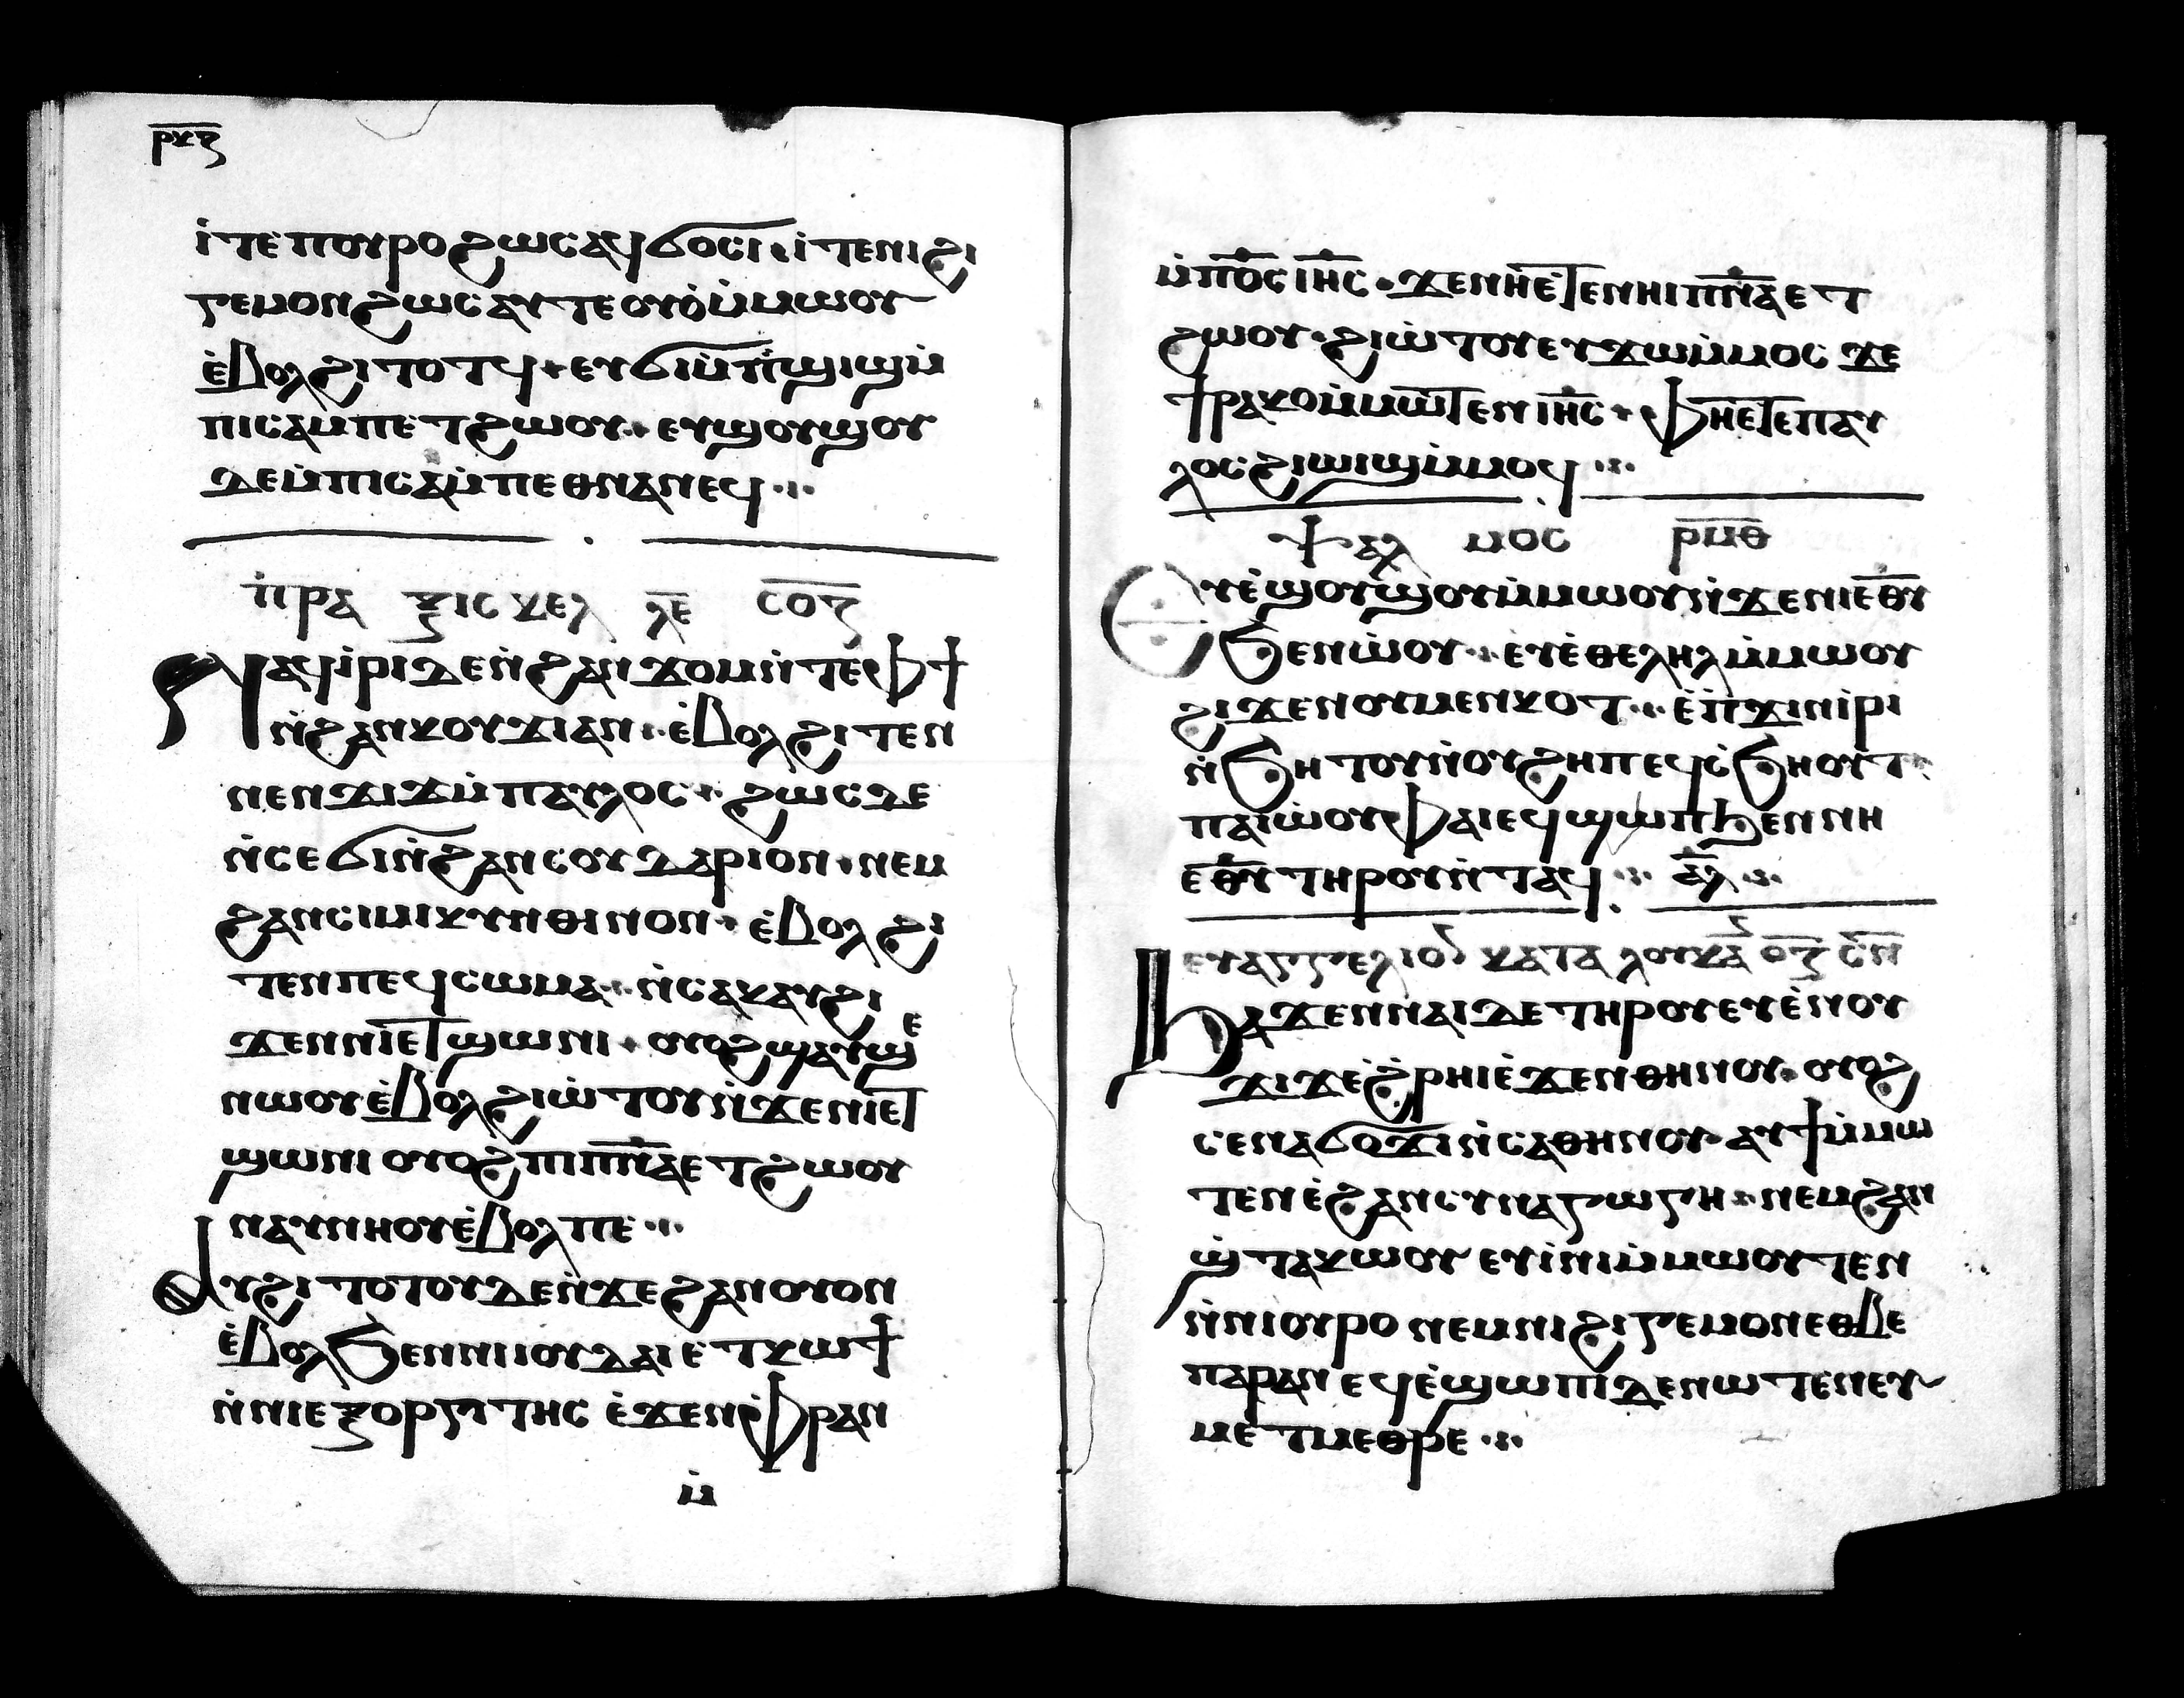 ⲣⲕⲍ
ⲓ̀ⲧⲉ ⲡⲟⲩⲣⲟ ϩⲱⲥ ⲁϥϭⲟⲥⲓ · ⲓ̀ⲧⲉ ⲛⲓϩⲓ
ⲅⲉⲙⲟⲛ ϩⲱⲥ ⲁⲩⲧⲉⲟⲩⲟ̀ ⲙ̀ⲙⲱⲟⲩ
ⲉ̀ⲃⲟⲗϩⲓⲧⲟⲧϥ · ⲉⲩϭⲓ ⲙ̀ⲡ̀ϣⲓϣ ⲙ̀
ⲡⲓⲥⲁⲙⲡⲉⲧϩⲱⲟⲩ · ⲉⲩϣⲟⲩϣⲟⲩ
ⲇⲉ ⲙ̀ⲡⲓⲥⲁⲙ̀ⲡⲉⲑⲛⲁⲛⲉϥ ⁘
ⲡ̀ⲣⲁ ⲝⲓⲥ ⲕⲉⲗ ⲗ̅ⲉ̅ ⲥ̅ⲟ̅ⲍ̅
Ⲛⲁϥⲓ̀ⲣⲓ ⲇⲉ ⲛ̀ϩⲁⲛϫⲟⲙ ⲛ̀ⲧⲉ ⲫϯ
ⲛ̀ϩⲁⲛⲕⲟⲩϫⲓ ⲁⲛ · ⲉ̀ⲃⲟⲗϩⲓⲧⲉⲛ
ⲛⲉⲛϫⲓϫ ⲙ̀ⲡⲁⲩⲗⲟⲥ · ϩⲱⲥ ⲇⲉ
ⲛ̀ⲥⲉϭⲓ ⲛ̀ϩⲁⲛⲥⲟⲩⲇⲁⲣⲓⲟⲛ · ⲛⲉⲙ
ϩⲁⲛⲥⲓⲙⲓⲕⲩⲛⲑⲓⲛⲟⲛ · ⲉ̀ⲃⲟⲗϩⲓ
ⲧⲉⲛ ⲡⲉϥⲥⲱⲙⲁ · ⲛ̀ⲥⲁⲭⲁⲩ ϩⲓ
ϫⲉⲛ ⲛⲓⲉⲧϣⲱⲛⲓ · ⲟⲩⲟϩ ϣⲁⲩϣⲉ
ⲛⲱⲟⲩ ⲉ̀ⲃⲟⲗ ϩⲓⲱ̀ⲧⲟⲩ ⲛ̀ϫⲉ ⲛⲓⲉⲧ
ϣⲱⲛⲓ ⲟⲩⲟϩ ⲡⲓⲡⲛ̅ⲁ̅ ⲉⲧϩⲱⲟⲩ
ⲛⲁⲩⲛⲏⲟⲩ ⲉ̀ⲃⲟⲗ ⲡⲉ ⁘
Ⲁⲩϩⲓⲧⲟⲧⲟⲩ ⲇⲉ ⲛ̀ϫⲉ ϩⲁⲛⲟⲩⲟⲛ
ⲉ̀ⲃⲟⲗϧⲉⲛ ⲛⲓⲓⲟⲩⲇⲁⲓ ⲉⲧⲕⲱϯ
ⲛ̀ⲛⲓⲉⲝⲟⲣⲅⲓⲧⲧⲏⲥ ⲉ̀ϫⲉⲛ ⲫ̀ⲣⲁⲛ
ⲙ̀
ⲙ̀ⲡⲟ̅ⲥ̅ ⲓⲏ̅ⲥ̅ · ϫⲉⲛ ⲛⲏⲉ̀ⲧⲉ ⲛⲓⲡⲛ̅ⲁ̅ ⲉⲧ
ϩⲱⲟⲩ · ϩⲓⲱ̀ⲧⲟⲩ ⲉⲩϫⲱ ⲙ̀ⲙⲟⲥ ϫⲉ
ϯⲧⲁⲣⲕⲟ ⲙ̀ⲙⲱⲧⲉⲛ ⲛ̀ⲓⲏ̅ⲥ̅ · ⲫⲏⲉⲧⲉ ⲡⲁⲩ
ⲗⲟⲥ ϩⲓⲱⲓϣ ⲙ̀ⲙⲟϥ ⁘
ⲯⲁⲗ ⲙⲟⲥ ⲣ̅ⲙ̅ⲑ̅
Ⲉⲩⲉ̀ϣⲟⲩϣⲟⲩ ⲙ̀ⲙⲱⲟⲩ ⲛ̀ϫⲉ ⲛⲓⲉ̅ⲑ̅ⲩ̅
ϧⲉⲛ ⲱ̀ⲟⲩ · ⲉⲩⲉ̀ⲑⲉⲗⲏⲗ ⲙ̀ⲙⲱⲟⲩ
ϩⲓϫⲉⲛ ⲟⲩⲙⲉⲛⲕⲟⲧ · ⲉ̀ⲡ̀ϫⲓⲛⲓ̀ⲣⲓ
ⲛ̀ϧⲏⲧⲟⲩ ⲛ̀ⲟⲩϩⲏⲡ ⲉϥⲥ̀ϧⲏⲟⲩⲧ ·
ⲡⲁⲓⲱ̀ⲟⲩ ⲫⲁⲓ ⲉϥϣⲱⲡ ϧⲉⲛ ⲛⲏ
ⲉ̅ⲑ̅ⲩ̅ ⲧⲏⲣⲟⲩ ⲛ̀ⲧⲁϥ ⁘ ⲁ̅ⲗ̅ ⁘
ⲉⲩⲁⲅⲅⲉⲗⲓⲟⲛ ⲕⲁⲧⲁ ⲗⲟⲩⲕⲁ̅ ⲟ̅ⲍ̅ ⲥ̅ⲛ̅
Ϧⲁϫⲉⲛ ⲛⲁⲓ ⲇⲉ ⲧⲏⲣⲟⲩ ⲉⲩⲉ̀ⲛⲟⲩ
ϫⲓϫ ⲉ̀ϩⲣⲏⲓ ⲉ̀ϫⲉⲛ ⲑⲏⲛⲟⲩ · ⲟⲩⲟϩ
ⲥⲉⲛⲁϭⲟϫⲓ ⲛ̀ⲥⲁ ⲑⲏⲛⲟⲩ · ⲁⲩϯ ⲙ̀ⲙⲱ
ⲧⲉⲛ ⲉ̀ϩⲁⲛⲥⲩⲛⲁⲅⲱⲅⲏ · ⲛⲉⲙ ϩⲁⲛ
ϣ̀ⲧⲁⲕⲱⲟⲩ ⲉⲩⲓ̀ⲛⲓ ⲙ̀ⲙⲱⲟⲩⲧⲉⲛ
ⲛ̀ⲛⲓⲟⲩⲣⲟ ⲛⲉⲙ ⲛⲓϩⲓⲅⲉⲙⲟⲛ ⲉⲑⲃⲉ
ⲡⲁⲣⲁⲛ ⲉϥⲉ̀ϣⲱⲡⲓ ⲇⲉ ⲛⲱⲧⲉⲛ ⲉⲩ
ⲙⲉⲧⲙⲉⲑⲣⲉ ⁘